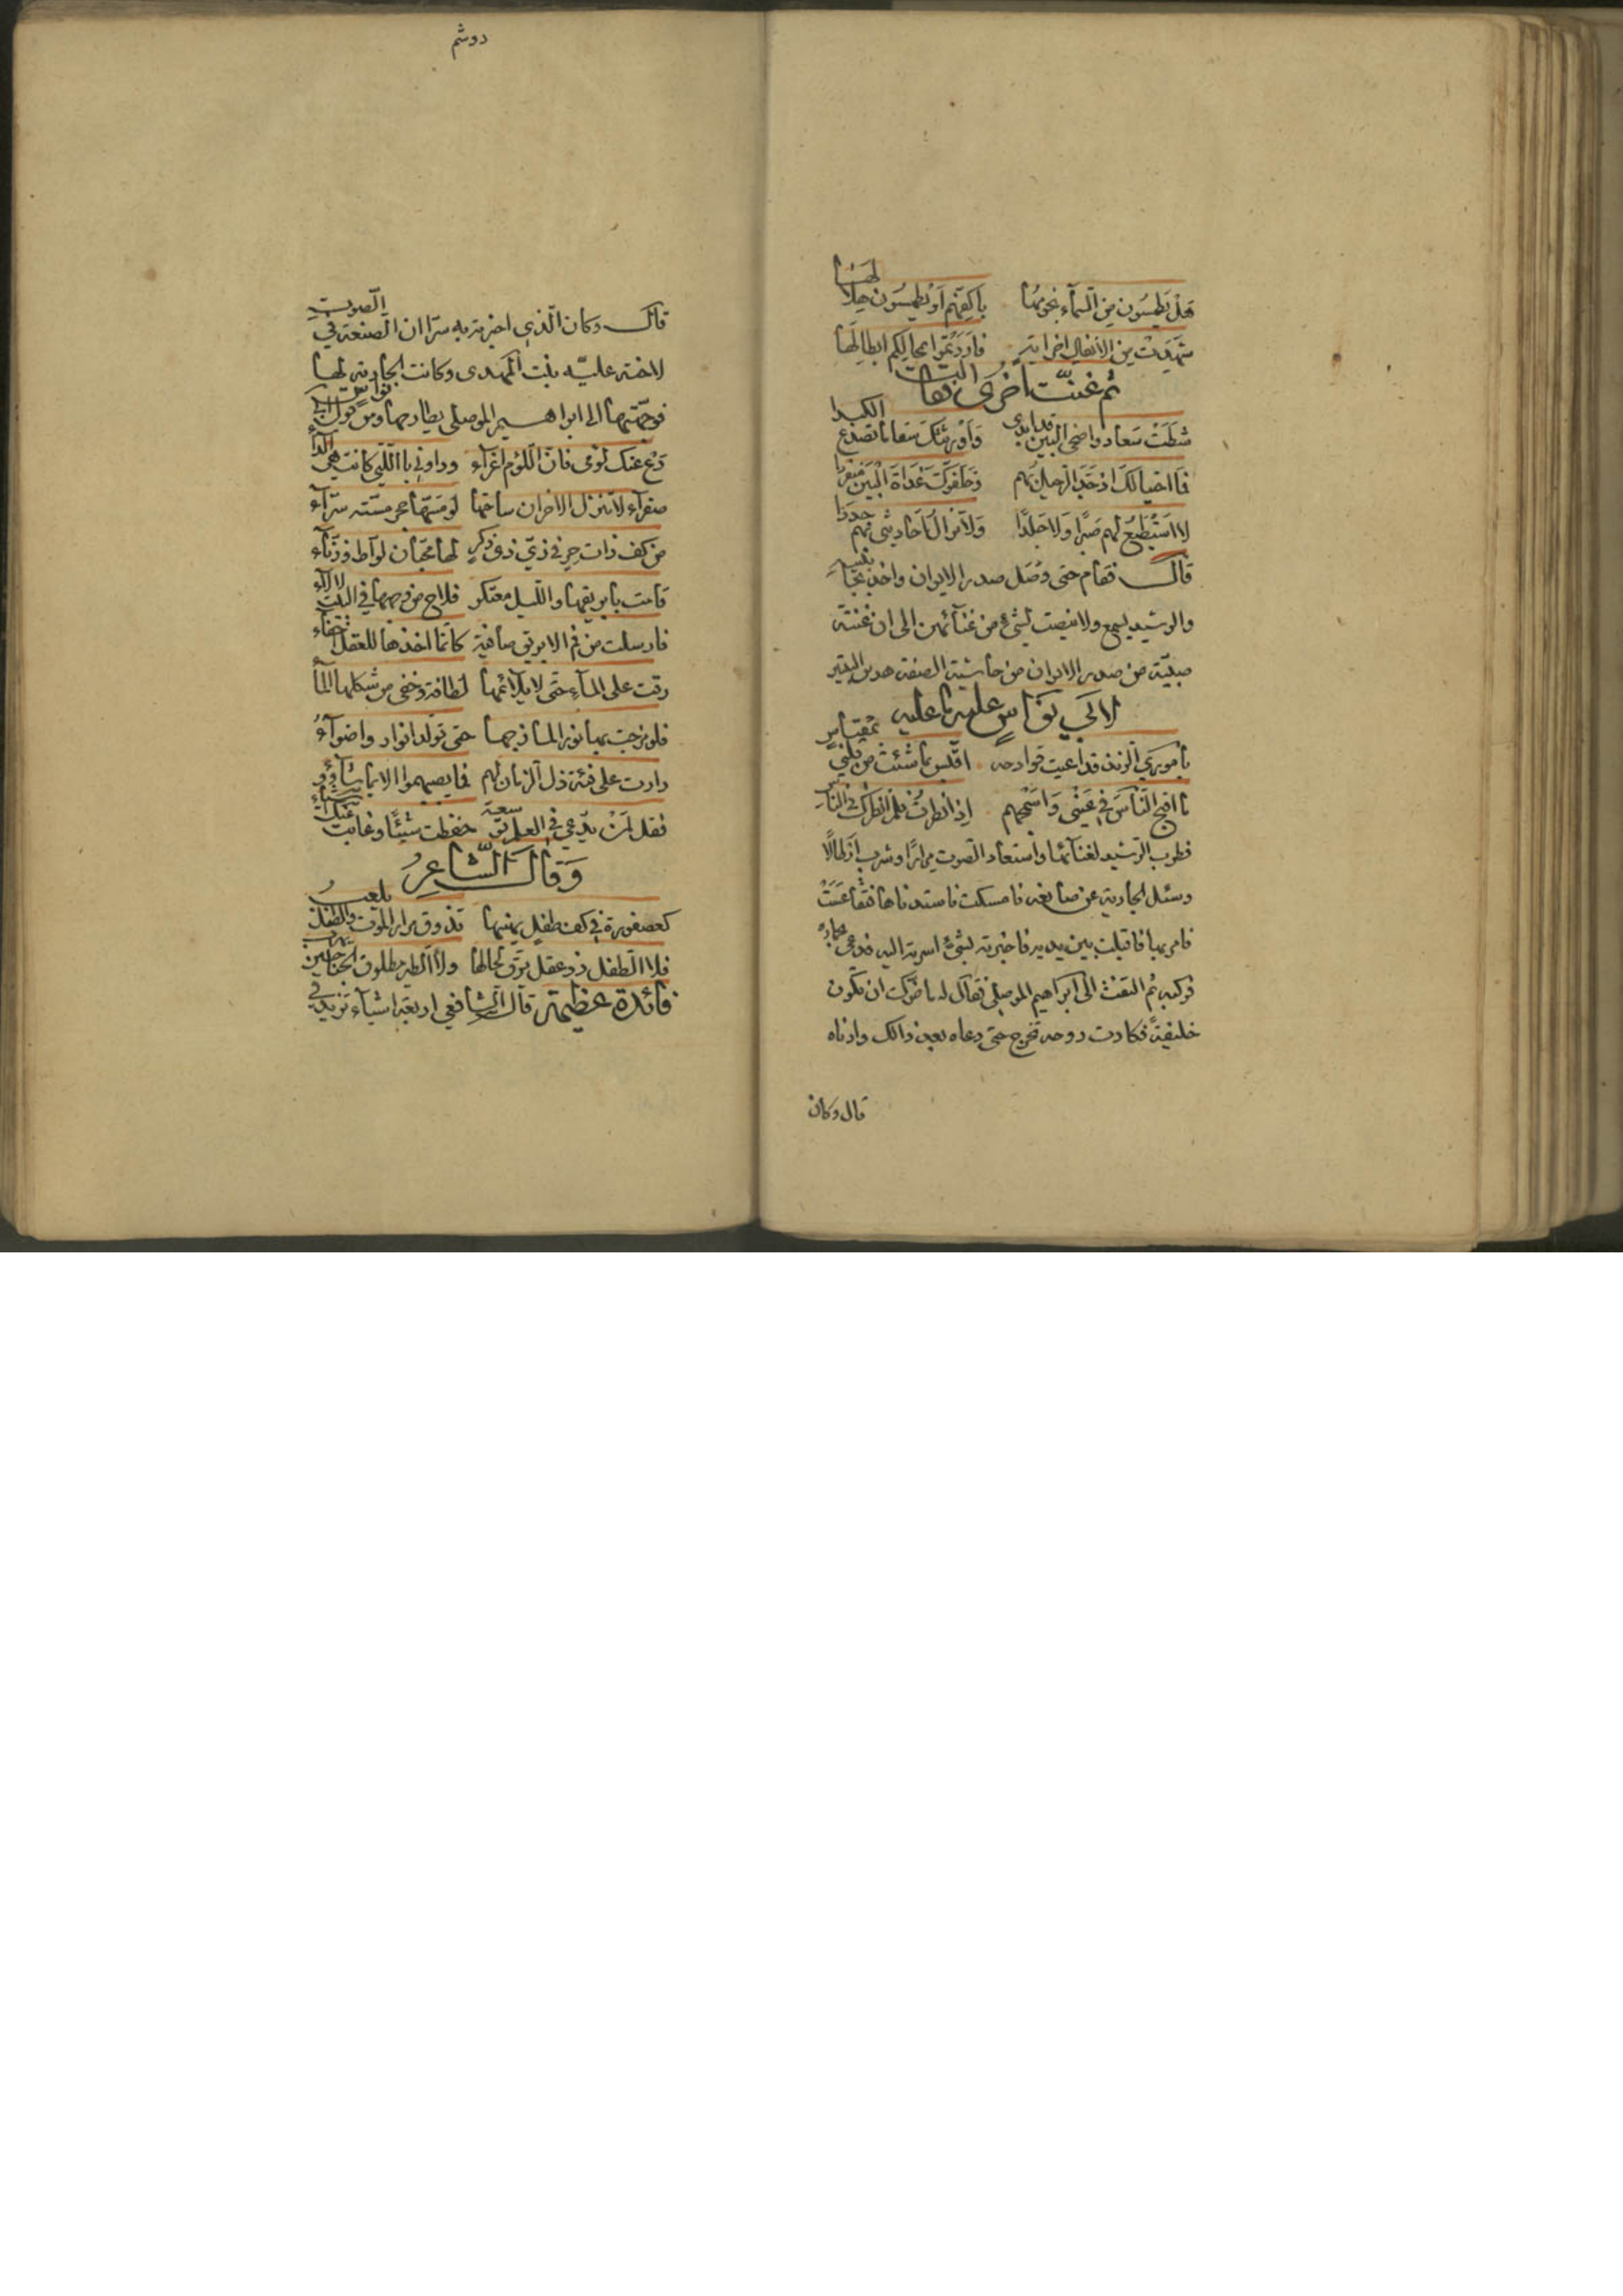 هَلْ يَطمِسُون مِنَ السّمآء نجومُهَا باكفّهم اَوْ يَطمِسُون هِلاَلَهَا
شهدت من الأنفال اخر اية فاردتموا بمحالكم ابطالها
ثم غنّت اخرى تقول البيت
شطّت سعاد واضحى البين قد ابدى وَاورثتك سقاما تصدع الكبدا
فما احتيالك اذ جدّ الرحيل بهم وخلفوك غداة البين منفردا
لا استطيع لهم صبرًا ولا جلدًا ولا تزال احاديثى بهم جددا
قال فقام حتى وصل صدر الايوان واخذ بجانبيه
والرشيد يسمع ولا ينصت لشيء من غنآئهن الى ان غنته
صبيّة من صدر الايوان من حاشية الصفة هدين البيتين
لابي نواس عليه ما عليه
يا موري الزند قد اعيت قوادحه اقبس بما شئت من قلبي بمقباس
ما اقبح الناسَ في عيني وَاسمجهم إذا نظرت فلم انظرك في الناس
فطرب الرشيد لغنآئها واستعاد الصوت مرارًا وشرب ارطالًا
وسئل الجارية عن صانعه فامسكت فاستدناها فتقاعست
فامر بها فاقبلت بين يديه فاخبرته بشيء اسرته اليه فدعى بحماره
فركبه ثم التفت الى ابراهيم الموصلي فقال له ما ضرّك ان تكون
خليفةً فكادت روحه تخرج حتى دعاه بعد ذالك وادناه
قال وكان
دوشم
قال وكان الّذي اخبرته به سرّا ان الصنعة في الصوت
لاخته عليّه بنت المهدى وكانت الجارية لها
فوجّهتها الى ابراهيم الموصلى يطارحها ومن قول ابي نواس
دع عنك لومى فانّ اللوم اغرآء وداوني باللتي كانت هي الدآء
صفرآء لا تنزل الاحزان ساحتها لو مسّها حجر مسّته سرّآء
من كف ذات حر في زيّ ذي ذكر لها محبّان لوّاط وزنّآء
قامت بابريقها والليل معتكر فلاح من وجهها في البيت لالآء
فارسلت من فم الابريق صافية كانّما اخذها للعقل اغفآء
رقت على المآء حتّى لا يلائمها لطافة وخفى من شكلها المآ
فلو مزجت بها نورا لمازجها حتى تولد انوار واضوآء
دارت على فئة ذل الزمان لهم فما يصيبهموا الا بما شآؤو
فقل لمن يدّعي في العلم سعة حفظت شيئًا وغابت عنك اشيآء
وَقَالَ الشّاعِرُ
كعصفورة في كف طفل يهينها تذوق مرار الموت والطفل يلعب
فلا الطفل ذو عقل يرق لحالها ولا الطير مطلوق الجناحين يهرب
فائدة عظيمة قال الشافعي اربعة اشيآء تزيد في